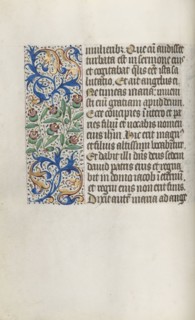 mulieribꝰ. Que cū audisset
turbata est in sermone eius
et cogitabat qlis eēt ista sa
lutatio. Et ait angelus ei
Ne timeas maria: inueni
sti em̄ gratiam apud deum.
Ecce concipies in utero et pa
ries filiū et vocabis nomen
eius ihm̄. Hic erit magnꝰ
et filius altissimi vocabitur.
Et dabit illi dn̄s deus sedem
dauid patris eius et regna
bit in domo iacob ī eternū.
et regni eius non erit finis.
Dixit autē maria ad ange